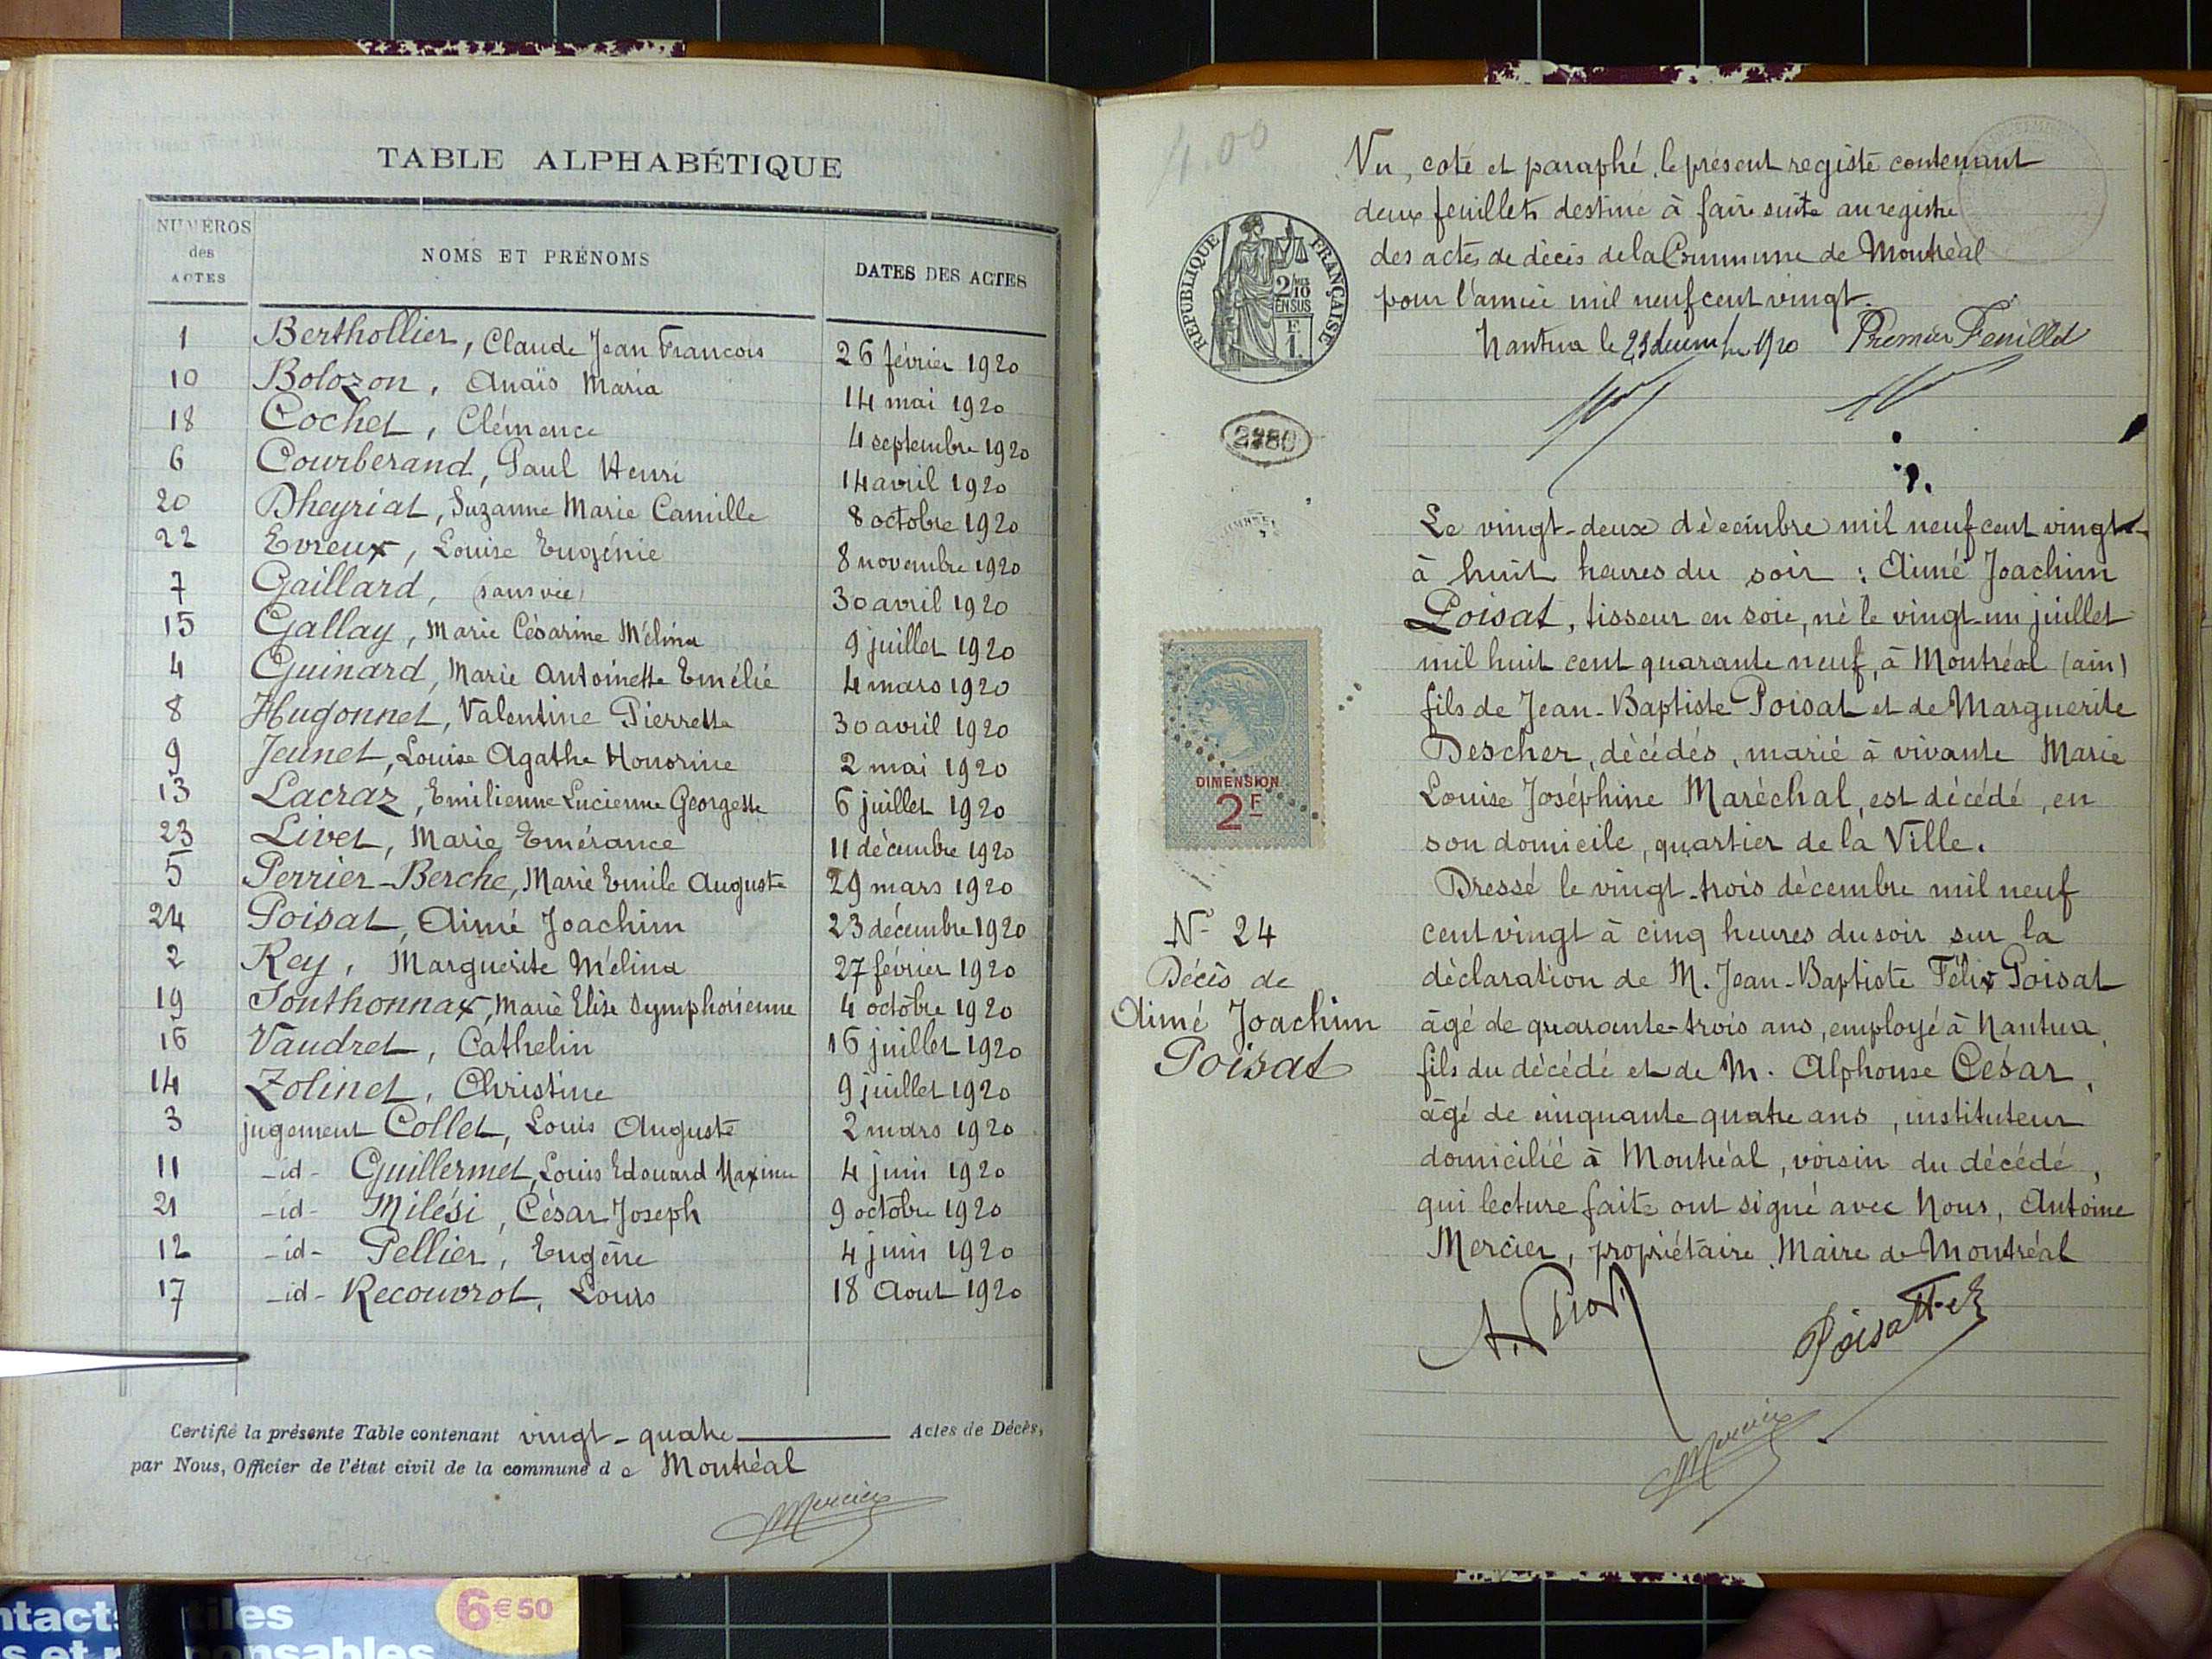 TABLE ALPHABÉTIQUE
NUMÉROS des ACTES NOMS ET PRÉNOMS DATES DES ACTES
1 Berthollier, Claude Jean François 26 février 1920
10 Bolozon, Anaïs Maria 14 mai 1920
18 Cochet, Clémence 4 septembre 1920
6 Courberand, Paul Henri 14 avril 1920
20 Dheyriat, Suzanne Marie Camille 8 octobre 1920
22 Evreux, Louise Eugénie 8 novembre 1920
7 Gaillard, (sans vie) 30 avril 1920
15 Gallay, Marie Césarine Mélina 9 juillet 1920
4 Guinard, Marie Antoinette Emélie 4 mars 1920
8 Hugonnet, Valentine Pierrette 30 avril 1920
9 Jeunet, Louise Agathe Honorine 2 mai 1920
13 Lacraz, Emilienne Lucienne Georgette 6 juillet 1920
23 Livet, Marie Emérance 11 décembre 1920
5 Perrier-Berche, Marie Emile Auguste 29 mars 1920
24 Poisat, Aimé Joachim 23 décembre 1920
2 Rey, Marguerite Mélina 27 février 1920
19 Sonthonnax, Marie Elise Symphorienne 4 octobre 1920
16 Vaudret, Cathelin 16 juillet 1920
14 Zolinet, Christine 9 juillet 1920
3 jugement Collet, Louis Auguste 2 mars 1920
11 -id- Guillermet, Louis Edouard Maxime 4 juin 1920
21 -id- Milési, César Joseph 9 octobre 1920
12 -id- Pellier, Eugène 4 juin 1920
17 -id- Recouvrot, Louis 18 Aout 1920
Certifié la présente Table contenant vingt-quatre Actes de Décès,
par Nous, Officier de l'état civil de la commune de Montréal
Mercier
4.00
Vu, coté et paraphé, le présent registre contenant
deux feuillets destiné à faire suite au registre
des actes de décès de la Commune de Montréal
pour l'année mil neuf cent vingt.
Nantua le 23 décembre 1920 Premier Feuillet
RÉPUBLIQUE FRANÇAISE
2/10 EN SUS
F. 1.
2380
DIMENSION
2F
N° 24
Décès de
Aimé Joachim
Poisat
Le vingt-deux décembre mil neuf cent vingt
à huit heures du soir : Aimé Joachim
Poisat, tisseur en soie, né le vingt un juillet
mil huit cent quarante neuf, à Montréal (ain)
fils de Jean-Baptiste Poisat et de Marguerite
Descher, décédés, marié à vivante Marie
Louise Joséphine Maréchal, est décédé, en
son domicile, quartier de la Ville.
Dressé le vingt-trois décembre mil neuf
cent vingt à cinq heures du soir sur la
déclaration de M. Jean-Baptiste Félix Poisat
âgé de quarante-trois ans, employé à Nantua,
fils du décédé et de M. Alphonse César,
âgé de cinquante quatre ans, instituteur
domicilié à Montréal, voisin du décédé,
qui lecture faite ont signé avec Nous, Antoine
Mercier, propriétaire, Maire de Montréal
Mercier
6€50
tiles